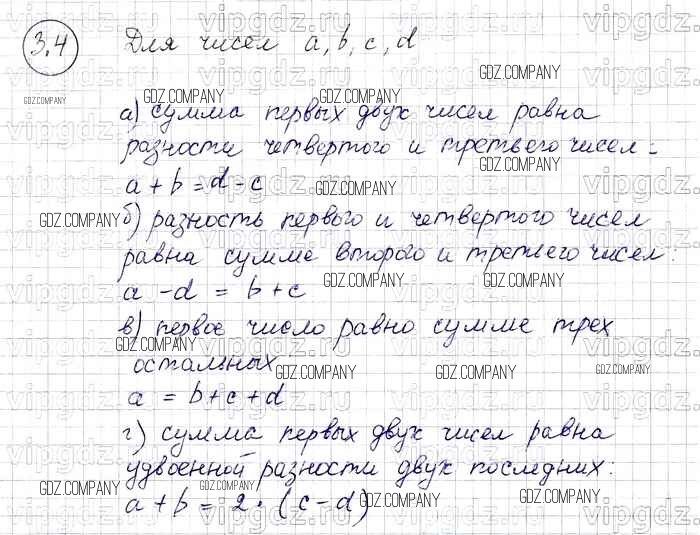 3.4 Для чисел a, b, c, d
а) сумма первых двух чисел равна
разности четвертого и третьего чисел -
a + b = d - c
б) разность первого и четвертого чисел
равна сумме второго и третьего чисел:
a - d = b + c
в) первое число равно сумме трех
остальных:
a = b + c + d
г) сумма первых двух чисел равна
удвоенной разности двух последних:
a + b = 2 · (c - d)
GDZ.COMPANY
vipgdz.ru